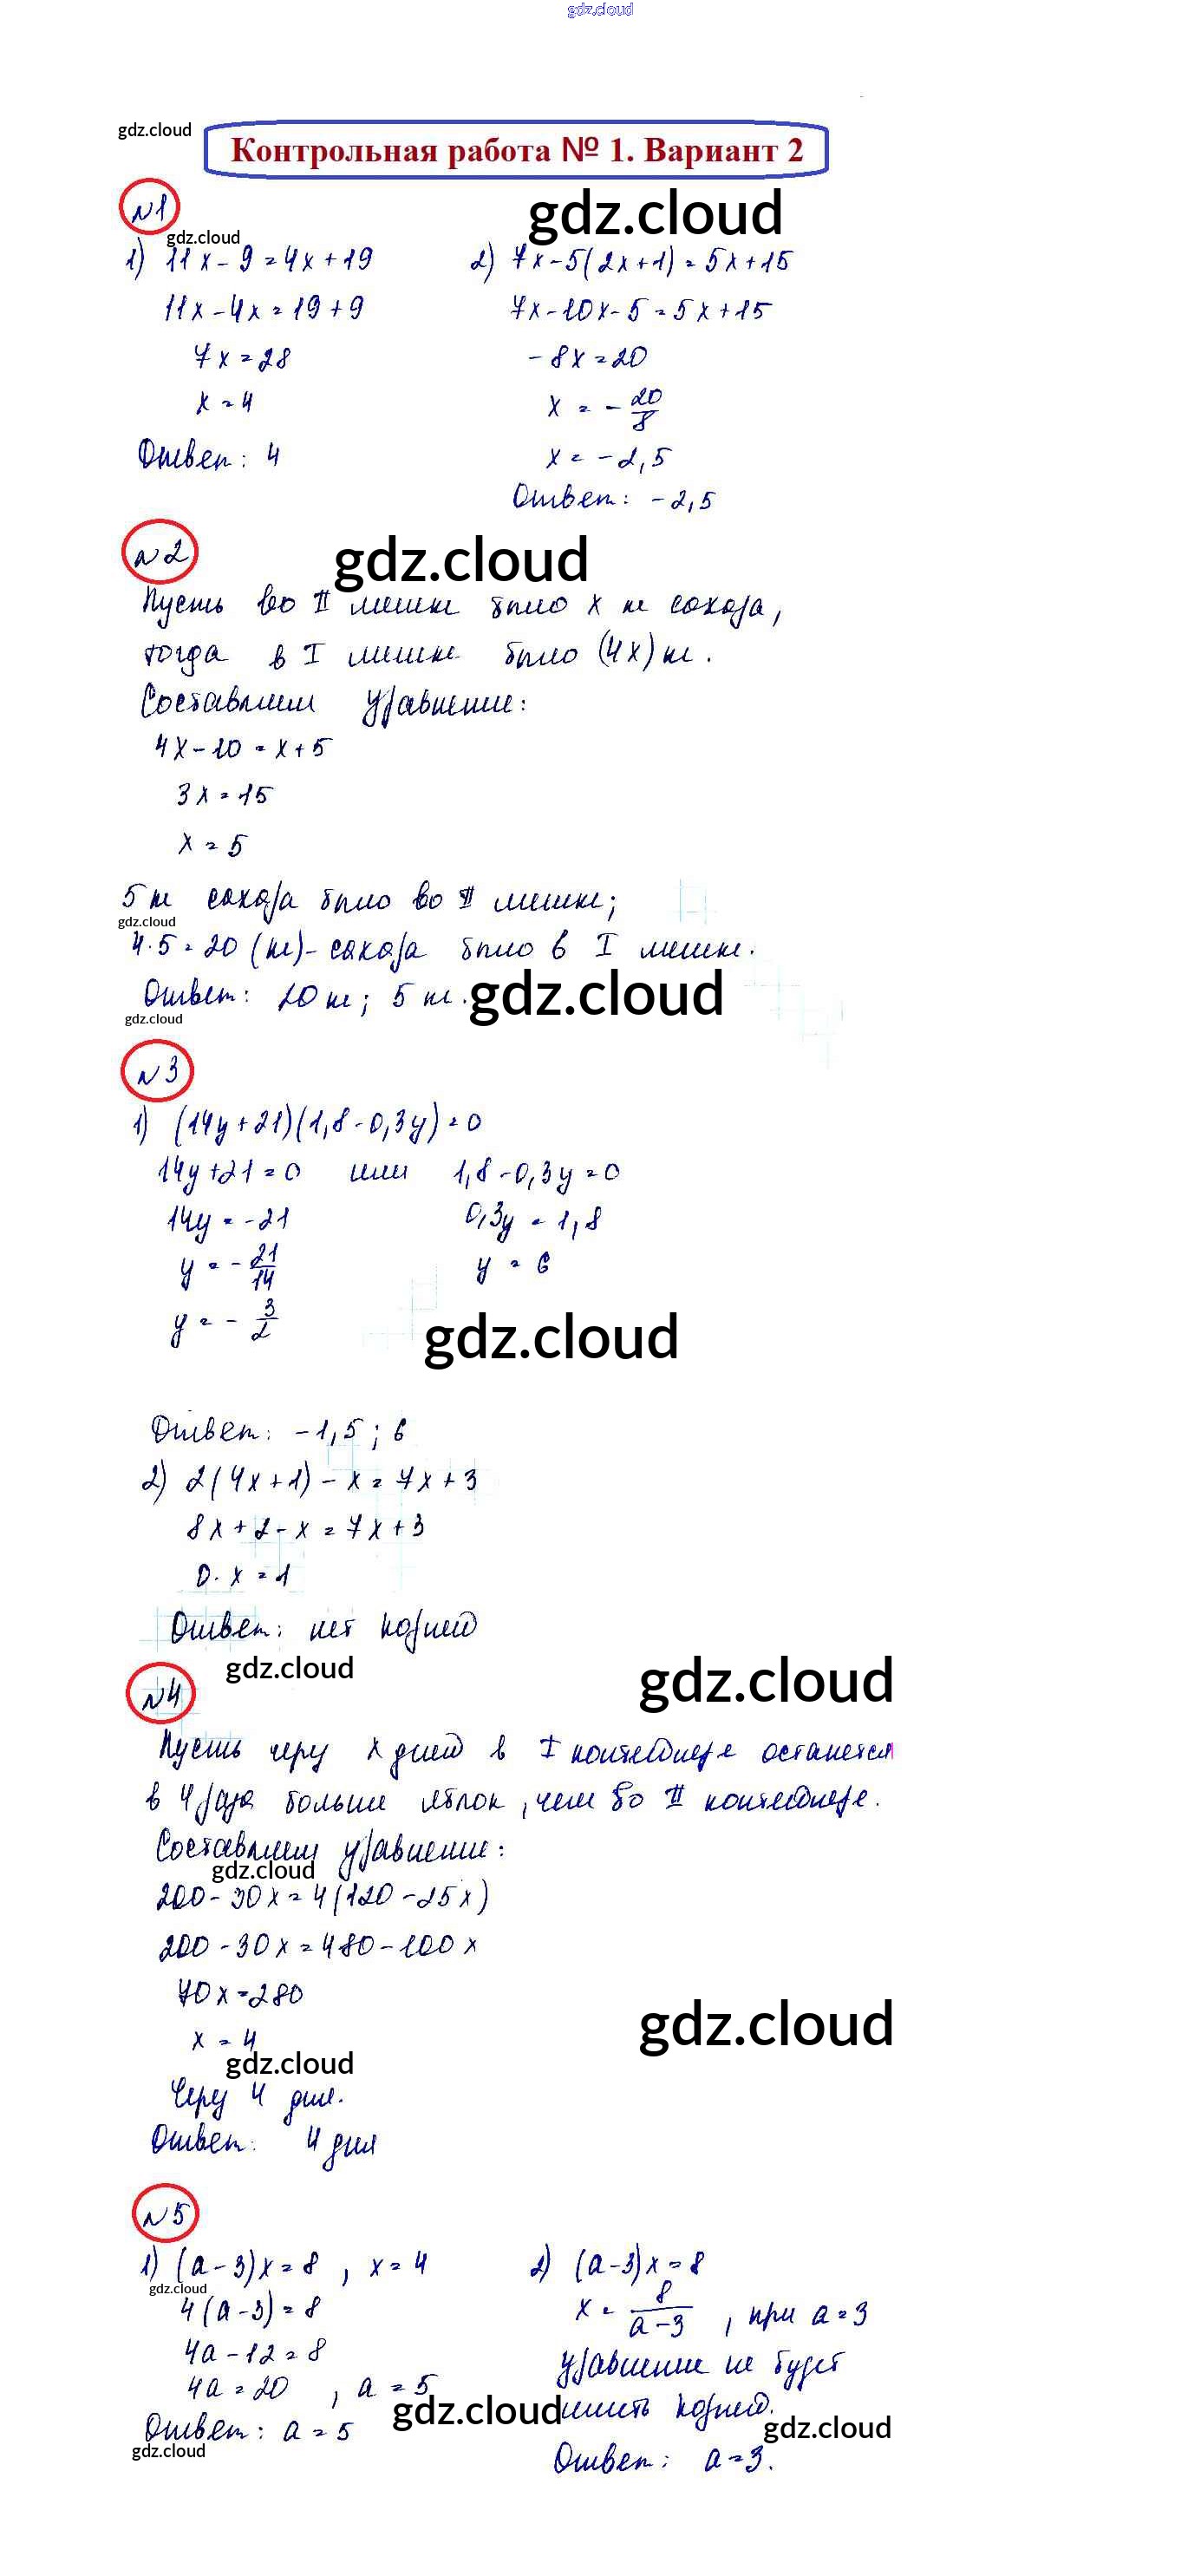 gdz.cloud
gdz.cloud
Контрольная работа № 1. Вариант 2
№1
gdz.cloud
gdz.cloud
1) 11x - 9 = 4x + 19
11x - 4x = 19 + 9
7x = 28
x = 4
Ответ: 4
2) 7x - 5(2x + 1) = 5x + 15
7x - 10x - 5 = 5x + 15
- 8x = 20
x = - 20/8
x = - 2,5
Ответ: - 2,5
№2
gdz.cloud
Пусть во II мешке было x кг сахара,
тогда в I мешке было (4x) кг.
Составим уравнение:
4x - 10 = x + 5
3x = 15
x = 5
5 кг сахара было во II мешке;
gdz.cloud
4·5 = 20 (кг) - сахара было в I мешке.
Ответ: 20 кг; 5 кг.
gdz.cloud
gdz.cloud
№3
1) (14y + 21)(1,8 - 0,3y) = 0
14y + 21 = 0 или 1,8 - 0,3y = 0
14y = -21 0,3y = 1,8
y = - 21/14 y = 6
y = - 3/2
gdz.cloud
Ответ: -1,5 ; 6
2) 2(4x + 1) - x = 7x + 3
8x + 2 - x = 7x + 3
0·x = 1
Ответ: нет корней
gdz.cloud
gdz.cloud
№4
Пусть через x дней в I контейнере останется
в 4 раза больше яблок, чем во II контейнере.
Составим уравнение:
gdz.cloud
200 - 30x = 4(120 - 25x)
200 - 30x = 480 - 100x
70x = 280
gdz.cloud
x = 4
gdz.cloud
Через 4 дня.
Ответ: 4 дня
№5
1) (a - 3)x = 8 , x = 4
gdz.cloud
4(a - 3) = 8
4a - 12 = 8
4a = 20 , a = 5
Ответ: a = 5
gdz.cloud
2) (a - 3)x = 8
x = 8/(a - 3) , при a = 3
уравнение не будет
gdz.cloud
иметь корней.
gdz.cloud
Ответ: a = 3.